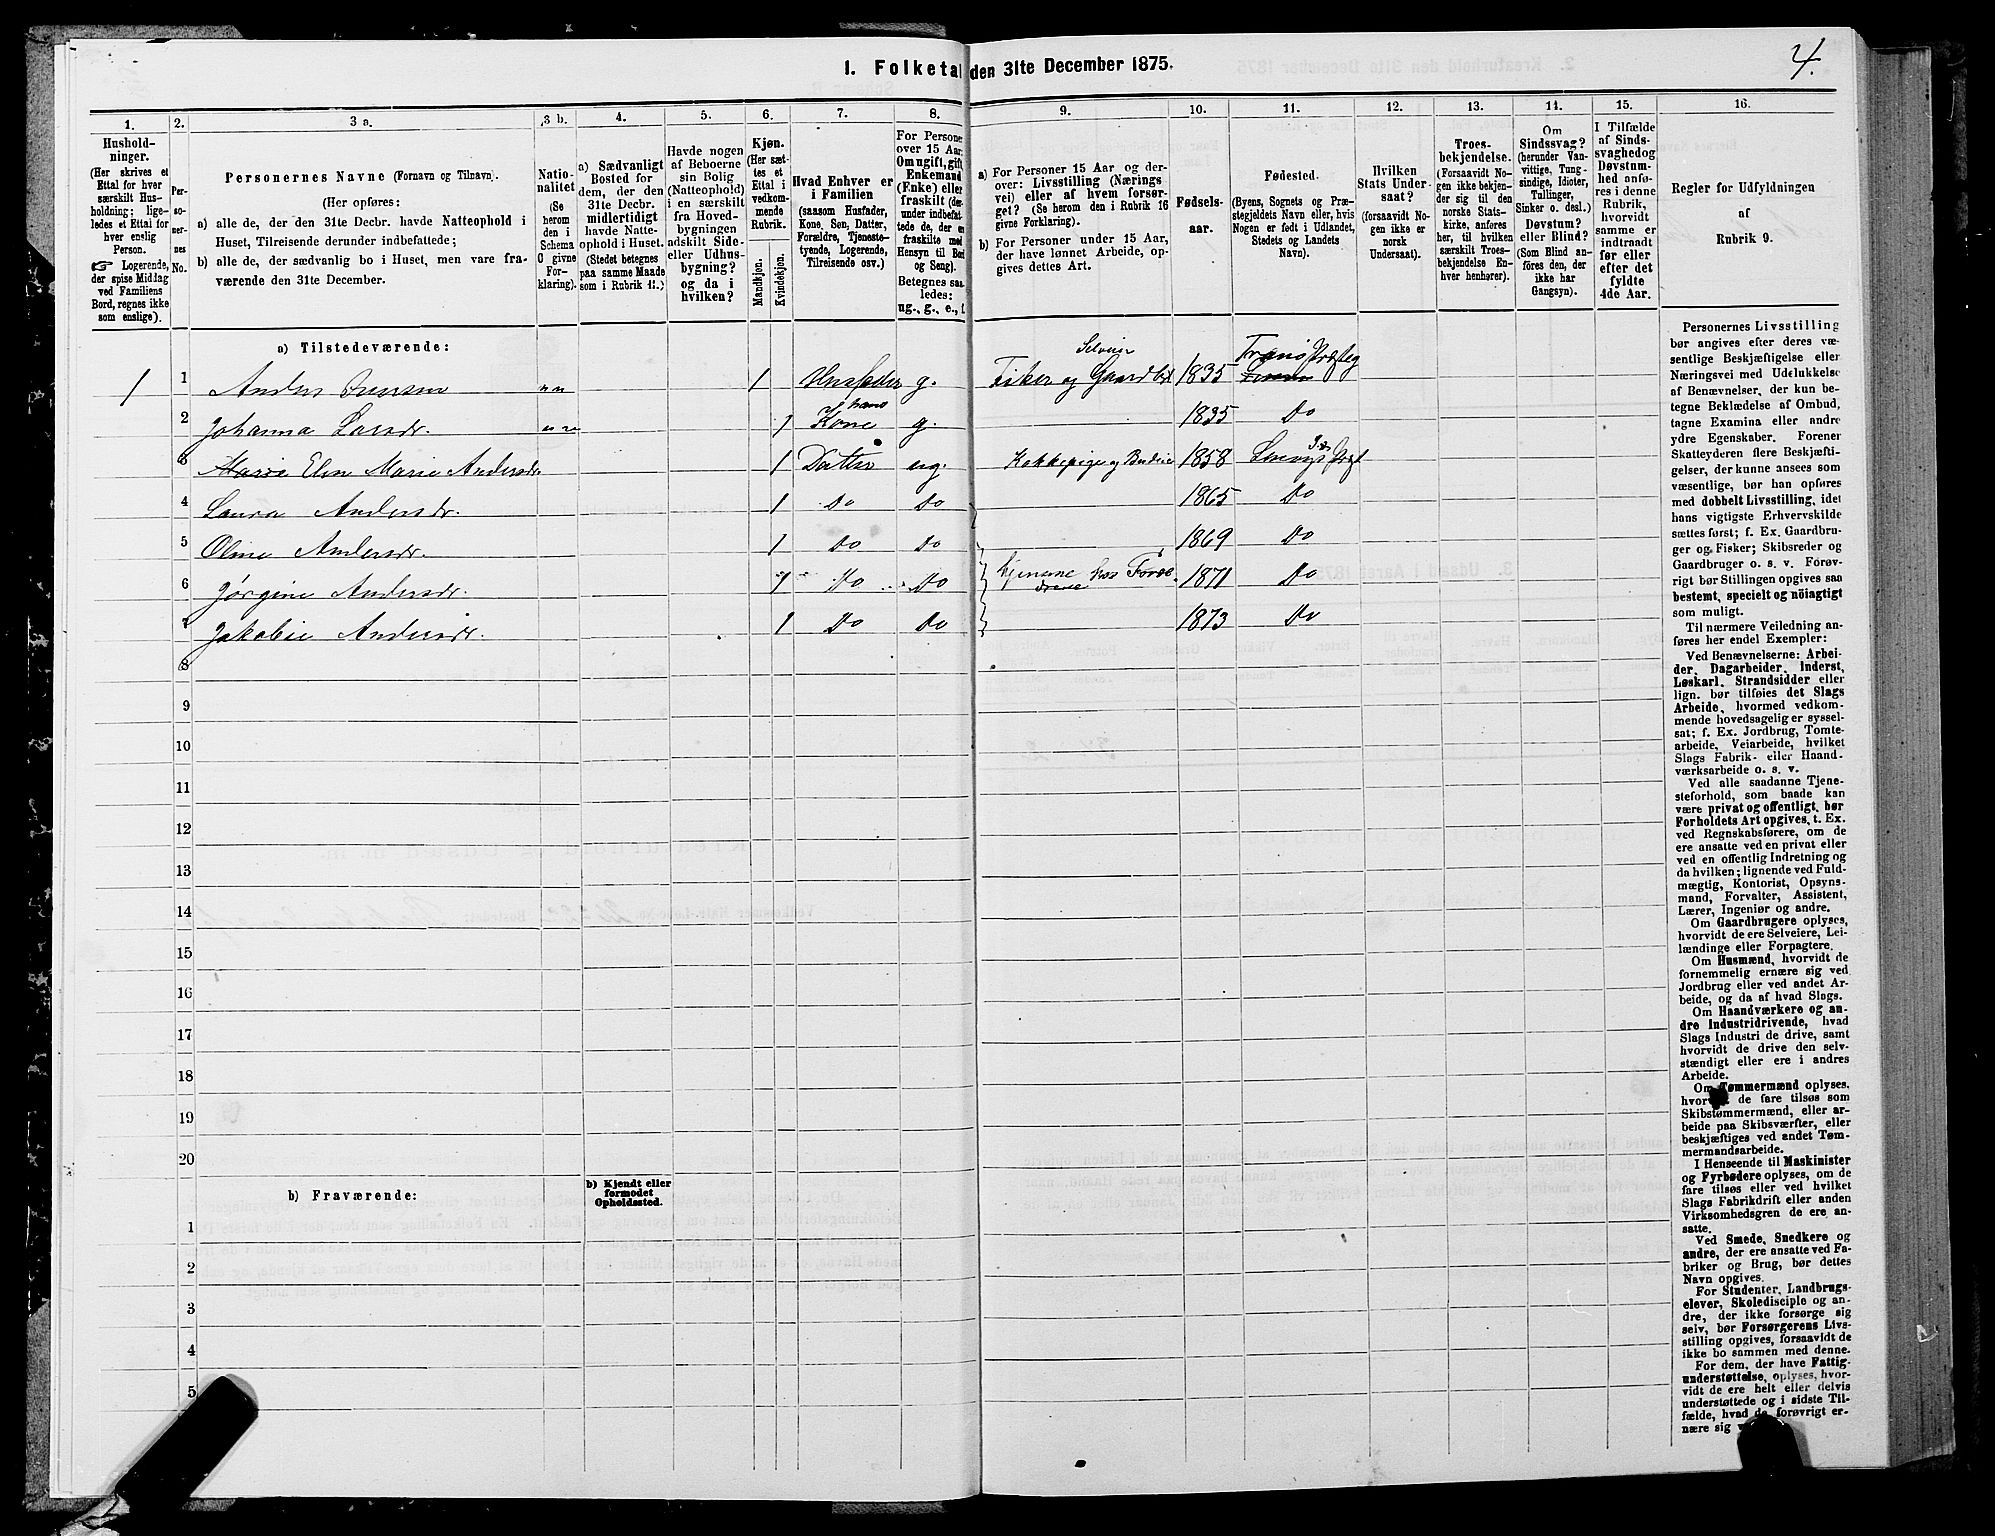 4.
1. Folketal den 31te December 1875.
1. 2. 3 a. 3 b. 4. 5. 6. 7. 8. 9. 10. 11. 12. 13. 14. 15. 16.
Hushold-
ninger.
(Her skrives et
Ettal for hver
særskilt Hus-
holdning; lige-
ledes et Ettal for
hver enslig
Person.
☞ Logerende,
der spise Middag
ved Familiens
Bord, regnes ikke
som enslige).
Per-
so-
ner-
nes
No.
Personernes Navne (Fornavn og Tilnavn).
(Her opføres:
a) alle de, der den 31te Decbr. havde Natteophold i
Huset, Tilreisende derunder indbefattede;
b) alle de, der sædvanlig bo i Huset, men vare fra-
værende den 31te December.
Natio-
nalitet
(Se
herom
den i
Schema
O givne
For-
klaring).
a) Sædvanligt
Bosted for
dem, der den
31te Decbr.
midlertidigt
havde Natte-
ophold i Huset.
(Stedet betegnes
paa samme Maade
som i Rubrik 11.)
Havde nogen
af Beboerne
sin Bolig
(Natteophold)
i en særskilt
fra Hoved-
bygningen
adskilt Side-
eller Udhus-
bygning?
og da i
hvilken?
Kjøn.
(Her sæt-
tes et
Ettal i
vedkom-
mende
Rubrik.
Mandkjøn.
Kvindekjøn.
Hvad Enhver er
i Familien
(saasom Husfader,
Kone, Søn, Datter,
Forældre, Tjeneste-
tyende, Logerende,
Tilreisende osv.)
For Personer
over 15 Aar:
Om ugift, gift
Enkemand
(Enke) eller
fraskilt (der-
under indbefat-
tede de, der ere
fraskilte med
Hensyn til Bord
og Seng).
Betegnes saa-
ledes:
ug., g., e., f.
a) For Personer 15 Aar og der-
over: Livsstilling (Nærings
vei) eller af hvem forsør-
get? (Se herom den i Rubrik 16
givne Forklaring).
b) For Personer under 15 Aar,
der have lønnet Arbeide, op-
gives dettes Art.
Fødsels-
aar.
Fødested.
(Byens, Sognets og Præ-
stegjeldets Navn eller, hvis
Nogen er født i Udlandet,
Stedets og Landets
Navn).
Hvilken
Stats Under-
saat?
(forsaavidt No-
gen ikke er
norsk
Undersaat).
Troes-
bekjendelse.
(Forsaavidt No-
gen ikke bekjen-
der sig til den
norske Stats-
kirke, anføres
her, til hvilken
særskilt Troes-
bekjendelse En-
hver henhører).
Om
Sindssvag?
(herunder Van-
vittige, Tung-
sindige, Idioter,
Tullinger,
Sinker o. desl.)
Døvstum?
eller Blind?
(Som Blind an-
føres den, der
ikke har
Gangsyn).
I Tilfælde
af Sinds-
svaghed og
Døvstum-
hed anfø-
res i denne
Rubrik,
hvorvidt
samme er
indtraadt
før eller
efter det
fyldte
4de Aar.
Regler for Udfyldningen
af
Rubrik 9.
a) Tilstedeværende:
Selveier
Tranø Præsteg
1 1 Anders nn 1 Husfader g. Fisker og Gaardbr 1835
hans
2 Johanna Larsdr. nn 1 Kone g. 1835 Do
3 Elen Marie Andersdr 1 Datter ug. Kokkepige og Budeie 1858
4 Laura Andersdr. 1 Do Do 1865 Do
5 Oline Andersdr. 1 Do Do 1869 Do
6 Jørgine Andersdr. 1 Do Do hjemme hos Foræ- 1871 Do
drene
7 Jakobie Andersdr. 1 Do Do 1873 Do
8
9
10
11
12
13
14
15
16
17
18
19
20
b) Fraværende:
b) Kjendt eller
formodet
Opholdssted.
1
2
3
4
5
Personernes Livsstilling
bør angives efter deres væ-
sentlige Beskjæftigelse eller
Næringsvei med Udelukkelse
af Benævnelser, der kun be-
tegne Beklædelse af Ombud,
tagne Examina eller andre
ydre Egenskaber. Forener
Skatteyderen flere Beskjæfti-
gelser, der kunne ansees som
væsentlige, bør han opføres
med dobbelt Livsstilling, idet
hans vigtigste Erhvervskilde
sættes først; f. Ex. Gaardbru-
ger og Fisker; Skibsreder og
Gaardbruger o. s. v. Forøv-
rigt bør Stillingen opgives saa
bestemt, specielt og nöiagtigt
som muligt.
Til nærmere Veiledning an-
føres her endel Exempler:
Ved Benævnelserne: Arbei-
der, Dagarbeider, Inderst,
Løskarl, Strandsidder eller
lign. bør tilføies det Slags
Arbeide, hvormed vedkom-
mende hovedsagelig er syssel-
sat; f. Ex. Jordbrug, Tomte-
arbeide, Veiarbeide, hvilket
Slags Fabrik- eller Haand-
værksarbeide o. s. v.
Ved alle saadanne Tjene-
steforhold, som baade kan
være privat og offentligt, bør
Forholdets Art opgives, t. Ex.
ved Regnskabsførere, om de
ere ansatte ved en privat eller
ved en offentlig Indretning og
da hvilken; lignende ved Fuld-
mægtig, Kontorist, Opsyns-
mand, Forvalter, Assistent,
Lærer, Ingeniør og andre.
Om Gaardbrugere oplyses,
hvorvidt de ere Selveiere, Lei-
lændinge eller Forpagtere.
Om Husmænd, hvorvidt de
fornemmelig ernære sig ved
Jordbrug eller ved andet Ar-
beide, og da af hvad Slags.
Om Haandværkere og an-
dre Industridrivende, hvad
Slags Industri de drive, samt
hvorvidt de drive den selv-
stændigt eller ere i andres
Arbeide.
Om Tømmermænd oplyses,
hvorvidt de fare tilsøs som
Skibstømmermænd, eller ar-
beide paa Skibsværfter, eller
beskjæftiges ved andet Tøm-
mermandsarbeide.
I Henseende til Maskinister
og Fyrbødere oplyses, om de
fare tilsøs eller ved hvilket
Slags Fabrikdrift eller anden
Virksomhedsgren de ere an-
satte.
Ved Smede, Snedkere og
andre, der ere ansatte ved Fa-
briker og Brug, bør dettes
Navn opgives.
For Studenter, Landbrugs-
elever, Skoledisciple og an-
dre, der ikke forsørge sig
selv, bør Forsørgerens Livs-
stilling opgives, forsaavidt de
ikke bo sammen med denne.
For dem, der have Fattig-
understøttelse, oplyses, hvor-
vidt de ere helt eller delvis
understøttede og i sidste Til-
fælde, hvad de forøvrigt er-
nære sig